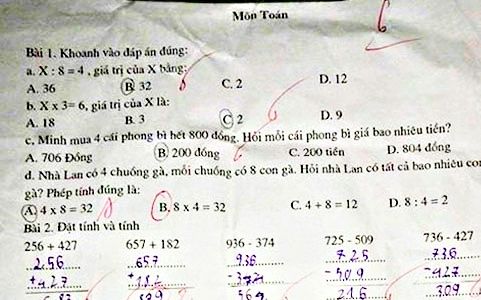 Môn Toán
6
Bài 1. Khoanh vào đáp án đúng:
a. X : 8 = 4 , giá trị của X bằng:
A. 36 B. 32 C. 2 D. 12
b. X x 3= 6, giá trị của X là:
A. 18 B. 3 C. 2 D. 9
c. Minh mua 4 cái phong bì hết 800 đồng. Hỏi mỗi cái phong bì giá bao nhiêu tiền?
A. 706 Đồng B. 200 đồng C. 200 tiền D. 804 đồng
d. Nhà Lan có 4 chuồng gà, mỗi chuồng có 8 con gà. Hỏi nhà Lan có tất cả bao nhiêu con
gà? Phép tính đúng là:
A. 4 x 8 = 32 B. 8 x 4 = 32 C. 4 + 8 = 12 D. 8 : 4 = 2
Bài 2. Đặt tính và tính
256 + 427 657 + 182 936 - 374 725 - 509 736 - 427
256 657 936 725 736
+427 +182 -374 -509 -427
683 839 562 216 309